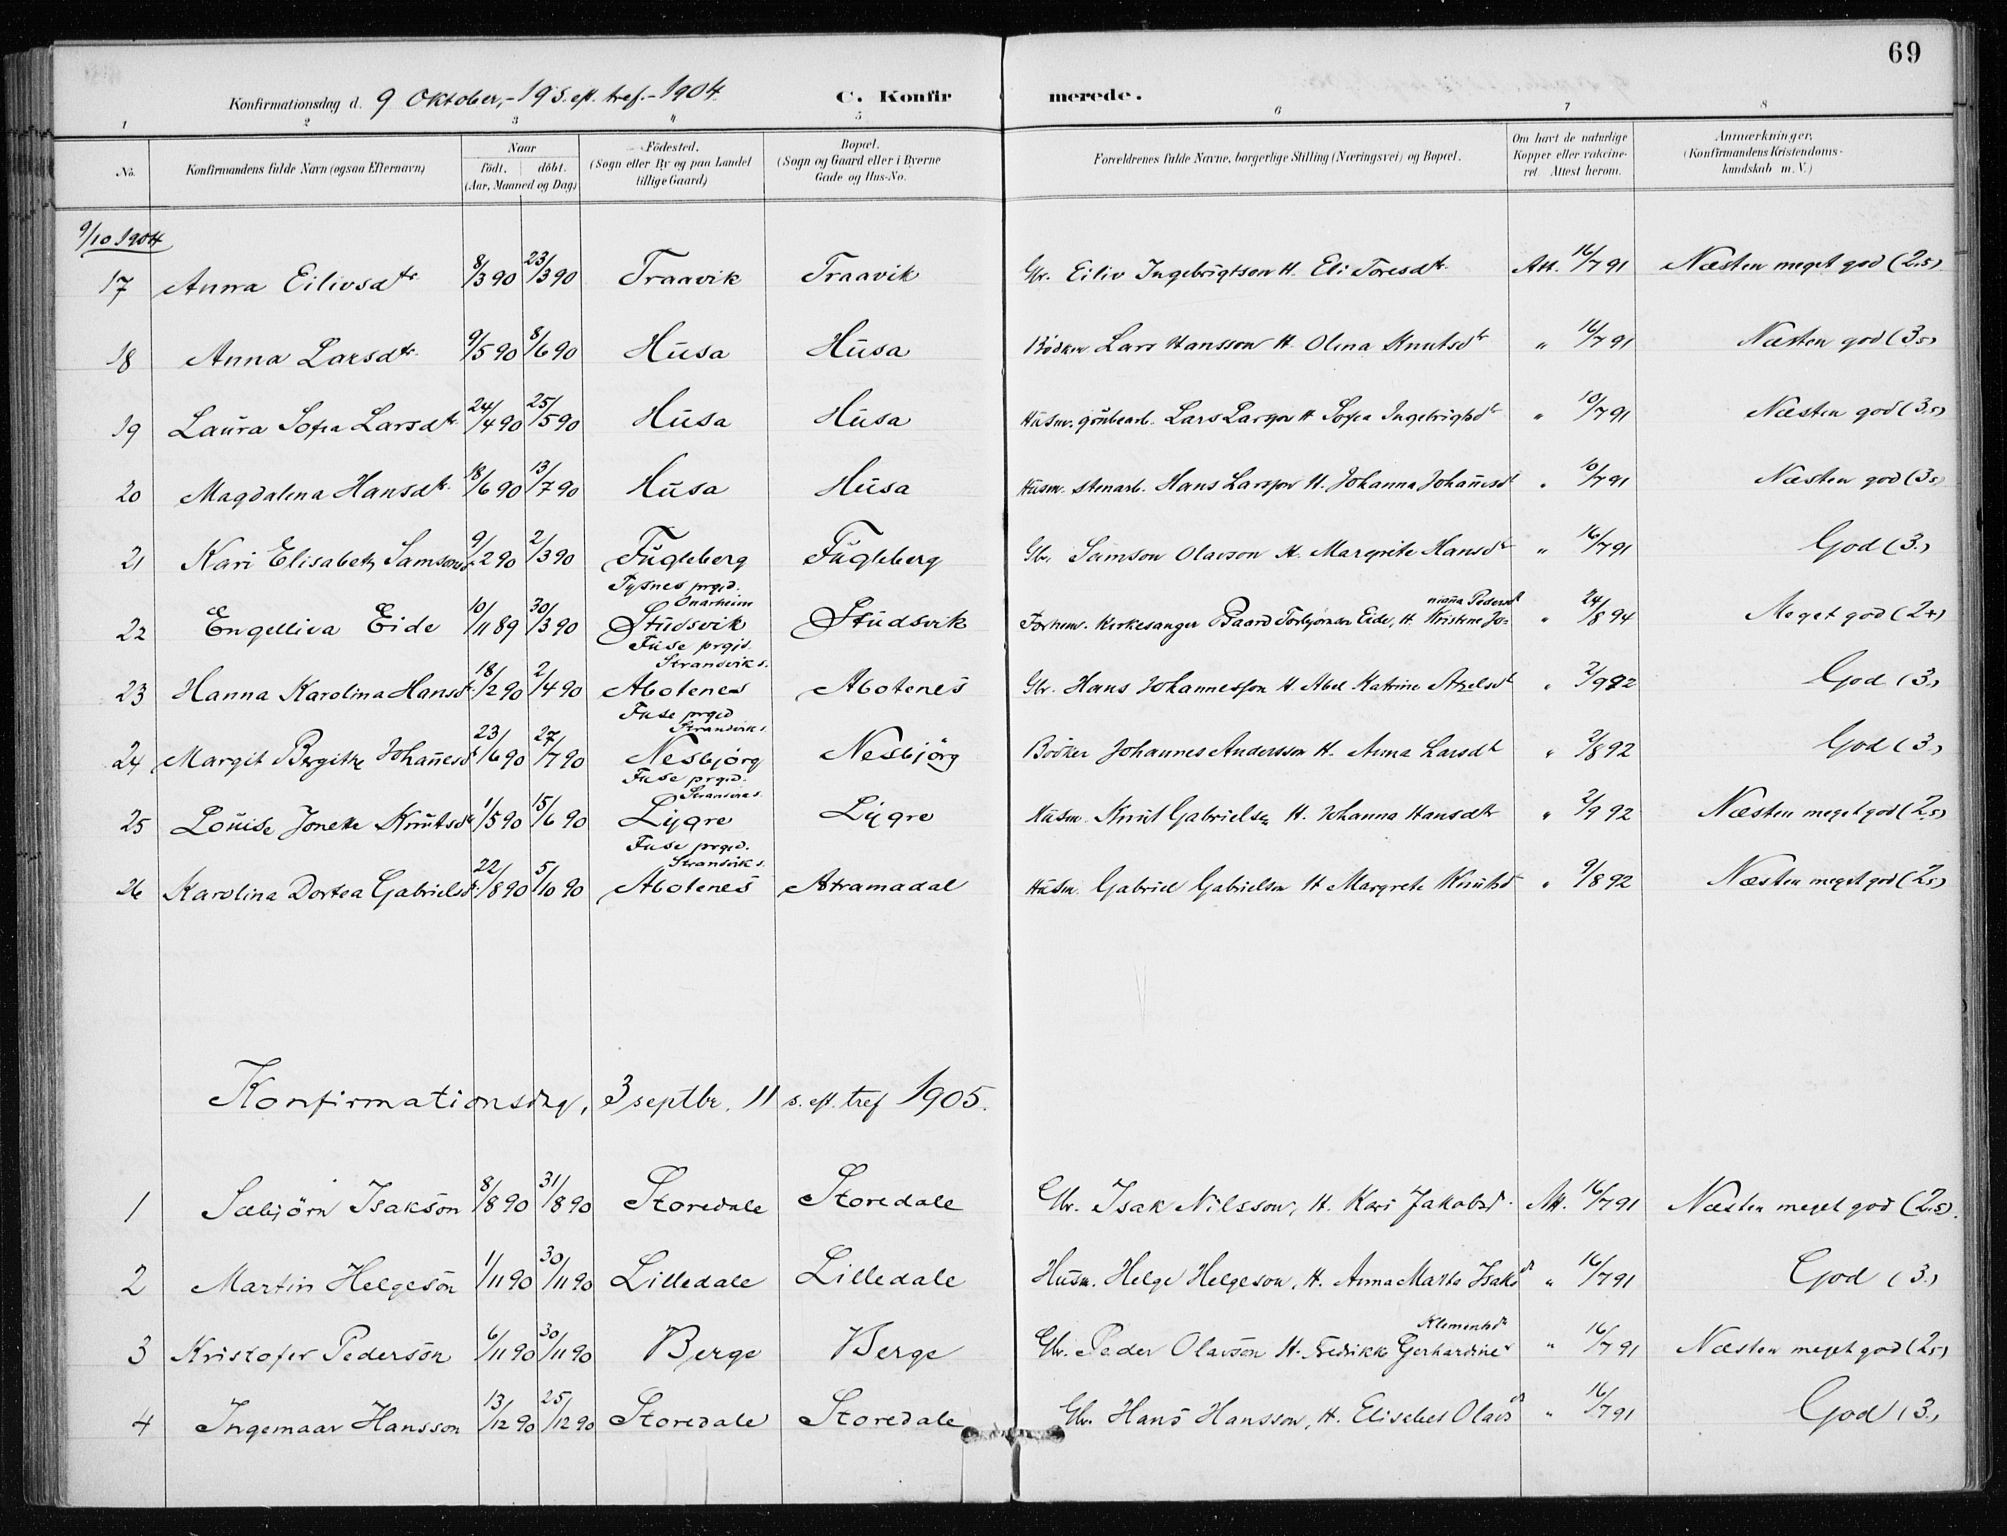 69
Konfirmationsdag d. 9 Oktober, - 19 s. eft. tref. - 1904. C. Konfirmerede.
1 2 3 4 5 6 7 8
No. Konfirmandens fulde Navn (ogsaa Efternavn) Naar födt, döbt. (Aar, Maaned og Dag) Födested. (Sogn eller By og paa Landet tillige Gaard) Bopæl. (Sogn og Gaard eller i Byerne Gade og Hus-No. Forældrenes fulde Navne, borgerlige Stilling (Næringsvei) og Bopæl. Om havt de naturlige Kopper eller vakcineret. Attest herom. Anmærkninger, (Konfirmandens Kristendomskundskab m. V.)
9/10 1904
17 Anna Eilivsdtr 8/3 90 23/3 90 Traavik Traavik Gbr. Eiliv Ingebrigtson H. Eli Toresdtr. Att. 16/7 91 Næsten meget god (2.5)
18 Anna Larsdtr. 9/5 90 8/6 90 Husa Husa Bödker Lars Hansson H. Olina Knutsdtr " 16/7 91 Næsten god (3.5)
19 Laura Sofia Larsdtr. 24/4 90 25/5 90 Husa Husa Husm. grubearb. Lars Larsson H. Sofia Ingebrigtsdtr " 10/7 91 Næsten god (3.5)
20 Magdalena Hansdtr. 18/6 90 13/7 90 Husa Husa Husm. stenarb. Hans Larsson H. Johanna Johañesdt " 10/7 91 Næsten god (3.5)
21 Kari Elisabeth Samsonsd 9/2 90 2/3 90 Fugleberg Fugleberg Gbr. Samson Olavson H. Margrite Hansdtr " 16/7 91 God (3.)
Tysnes prgjd. Onarheim
22 Engelliva Eide 10/11 89 30/3 90 Studsvik Studsvik Forhenv. Kirkesanger Baard Torbjørnsen Eide, H. Kristine Joniana Pedersdt " 24/8 94 Meget god (2+)
Fuse prgjd. Strandvik s.
23 Hanna Karolina Hansdt. 18/2 90 2/4 90 Abotenes Abotenes Gbr. Hans Johannesson H. Abel Katrine Axelsdt " 2/9 92 God (3.)
Fuse prgjd Strandvik s.
24 Margit Bergitte Johañesdt 23/6 90 27/7 90 Nesbjörg Nesbjörg Bödker Johannes Andersson H. Anna Larsdt " 3/8 92 God (3.)
Fuse prgjd. Strandvik s.
25 Louise Jonette Knutsdtr 1/5 90 15/6 90 Lygre Lygre Husm. Knut Gabrielsen H. Johanna Hansdtr " 2/9 92 Næsten meget god (2.5)
Fuse prgjd. Strandvik s.
26 Karolina Dortea Gabrielsdt. 22/8 90 5/10 90 Abotenes Atramadal Husm. Gabriel Gabrielsen H Margrete Knutsd " 9/8 92 Næsten meget god (2.5)
Konfirmationsdag, 3 septbr. 11 s. eft. tref 1905.
1 Sæbjörn Isakson 8/8 90 31/8 90 Storedale Storedale Gbr. Isak Nilsson, H. Kari Jakobsd. Att. 16/7 91 Næsten meget god (2.5).
2 Martin Helgeson 1/11 90 30/11 90 Lilledale Lilledale Husm. Helge Helgeson, H. Anna Marta Isaksdt " 16/7 91 God (3.)
3 Kristofer Pederson 6/11 90 30/11 90 Berge Berge Gbr. Peder Olavson H. Fredrikke Gerhardine Klementsdt " 16/7 91 Næsten meget god (2.5)
4 Ingemaar Hansson 13/12 90 25/12 90 Storedale Storedale Gbr. Hans Hansson, H. Elisebet Olavsdt " 16/7 91 God (3.)